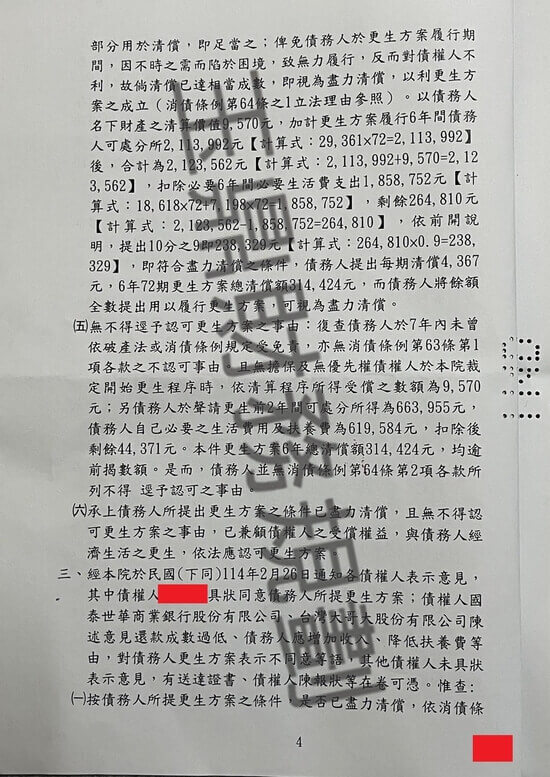 部分用於清償，即足當之；俾免債務人於更生方案履行期
間，因不時之需而陷於困境，致無力履行，反而對債權人不
利，故倘清償已達相當成數，即視為盡力清償，以利更生方
案之成立（消債條例第64條之1立法理由參照）。以債務人
名下財產之清算價值9,570元，加計更生方案履行6年間債務
人可處分所2,113,992元【計算式：29,361x72=2,113,992】
後，合計為2,123,562元【計算式：2,113,992+9,570=2,12
3,562】，扣除必要6年間必要生活費支出1,858,752元【計
算式：18,618x72+7,198x72=1,858,752】，剩餘264,810元
【計算式：2,123,562-1,858,752=264,810】，依前開說
明，提出10分之9即238,329元【計算式：264,810x0.9=238,
329】，即符合盡力清償之條件，債務人提出每期清償4,367
元，6年72期更生方案總清償額314,424元，而債務人將餘額
全數提出用以履行更生方案，可視為盡力清償。
㈤無不得逕予認可更生方案之事由：復查債務人於7年內未曾
依破產法或消債條例規定受免責，亦無消債條例第63條第1
項各款之不認可事由，且無擔保及無優先權債權人於本院裁
定開始更生程序時，依清算程序所得受償之數額為9,570
元；另債務人於聲請更生前2年間可處分所得為663,955元，
債務人自己必要之生活費用及扶養費為619,584元，扣除後
剩餘44,371元。本件更生方案6年總清償額314,424元，均逾
前揭數額。是而，債務人並無消債條例第64條第2項各款所
列不得 逕予認可之事由。
㈥承上債務人所提出更生方案之條件已盡力清償，且無不得認
可更生方案之事由，已兼顧債權人之受償權益，與債務人經
濟生活之更生，依法應認可更生方案。
三、經本院於民國(下同)114年2月26日通知各債權人表示意見，
其中債權人 具狀同意債務人所提更生方案；債權人國
泰世華商業銀行股份有限公司、台灣大哥大股份有限公司陳
述意見還款成數過低、債務人應增加收入、降低扶養費等
由，對債務人更生方案表示不同意等語，其他債權人未具狀
表示意見，有送達證書、債權人陳報狀等在卷可憑。惟查：
㈠按債務人所提更生方案之條件，是否已盡力清償，依消債條
4